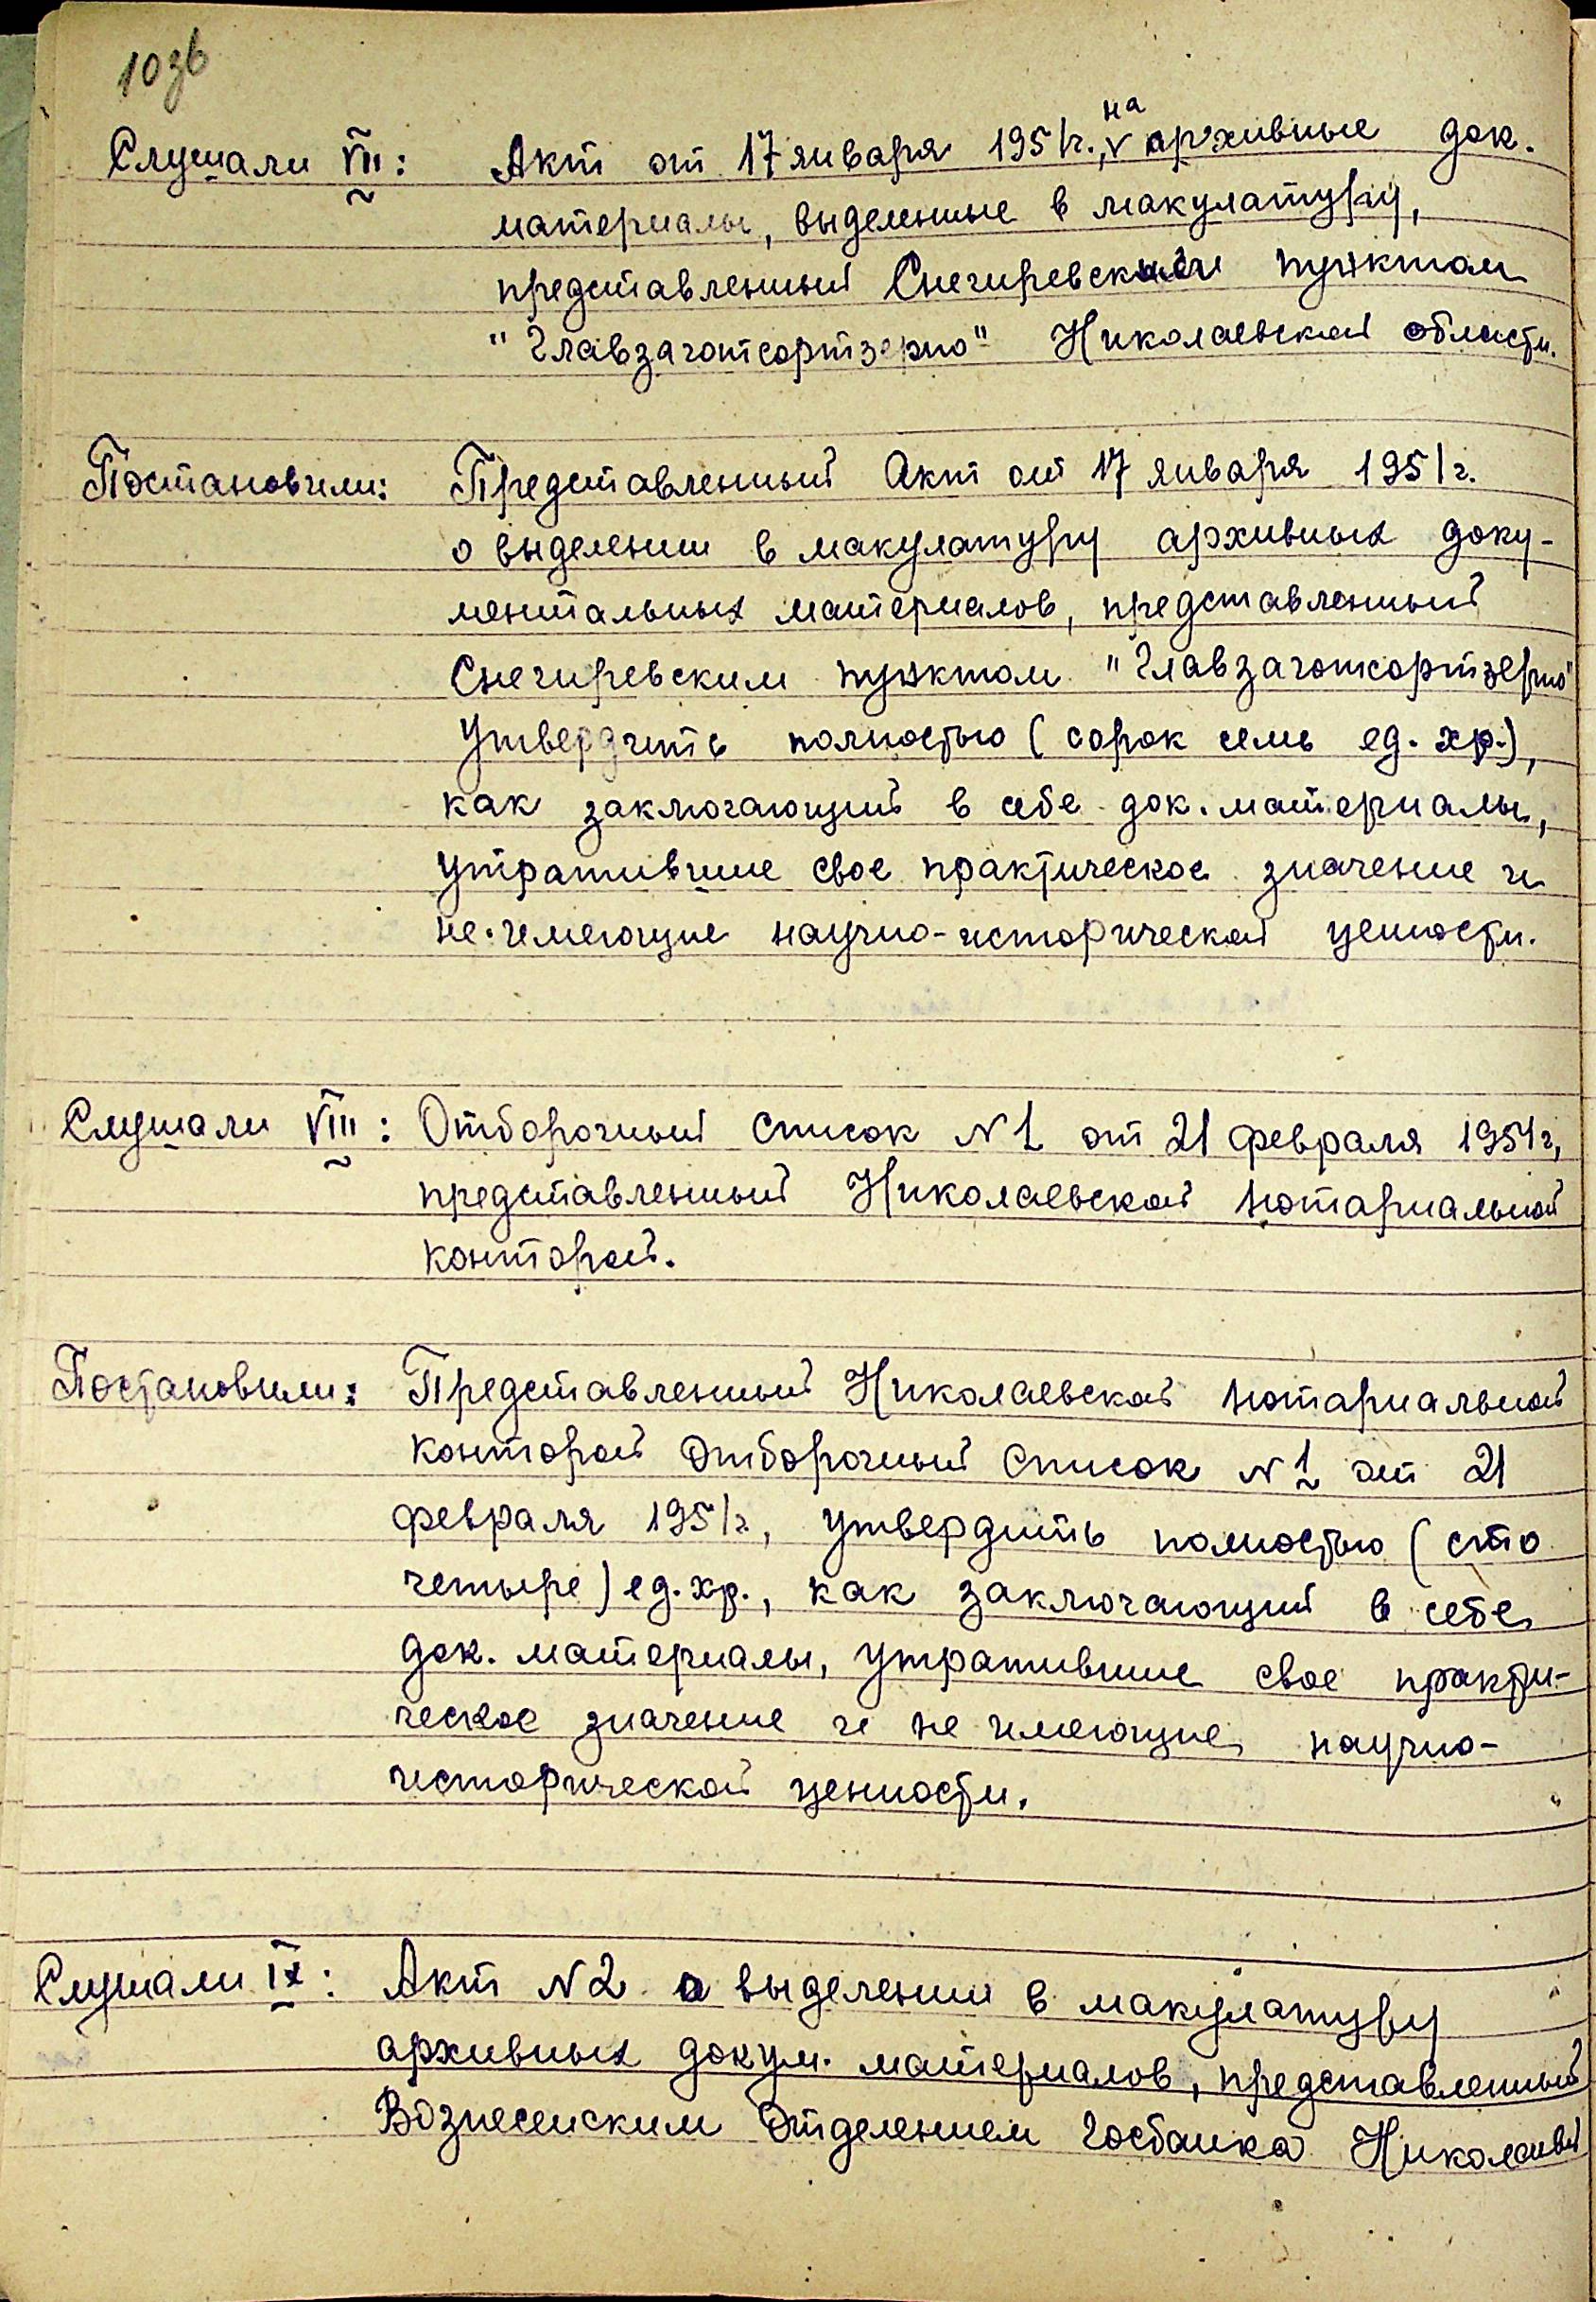 103б
Слушали VII: Акт от 17 января 1951г., на архивные док.
материалы, выделенные в макулатуру,
представленный Снегиревским пунктом
"Главзаготсортзерно" Николаевской области.
Постановили: Представленный Акт от 17 января 1951г.
о выделении в макулатуру архивных доку-
ментальных материалов, представленный
Снегиревским пунктом "Главзаготсортзерно"
утвердить полностью (сорок семь ед. хр.),
как заключающий в себе док. материалы,
утратившие свое практическое значение и
не имеющие научно-исторической ценности.
Слушали VIII: Отборочный список N1 от 21 февраля 1951г,
представленный Николаевской нотариальной
конторой.
Постановили: Представленный Николаевской нотариальной
конторой отборочный список N1 от 21
февраля 1951г, утвердить полностью (сто
четыре) ед. хр., как заключающий в себе
док. материалы, утратившие свое практи-
ческое значение и не имеющие научно-
исторической ценности.
Слушали IX: Акт N2 о выделении в макулатуру
архивных докум. материалов, представленный
Вознесенским отделением Госбанка